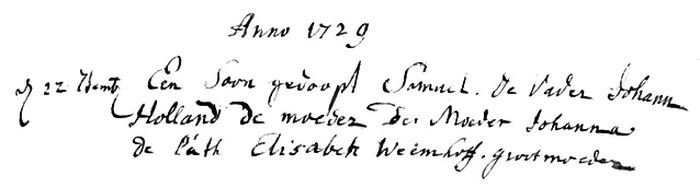 Anno 1729
22 Een Soon gedoopt Samuel. de Vader Johann
Holland de moeder De Moeder Johanna
de Path Elisabeth Weemhoff. grootmoeder